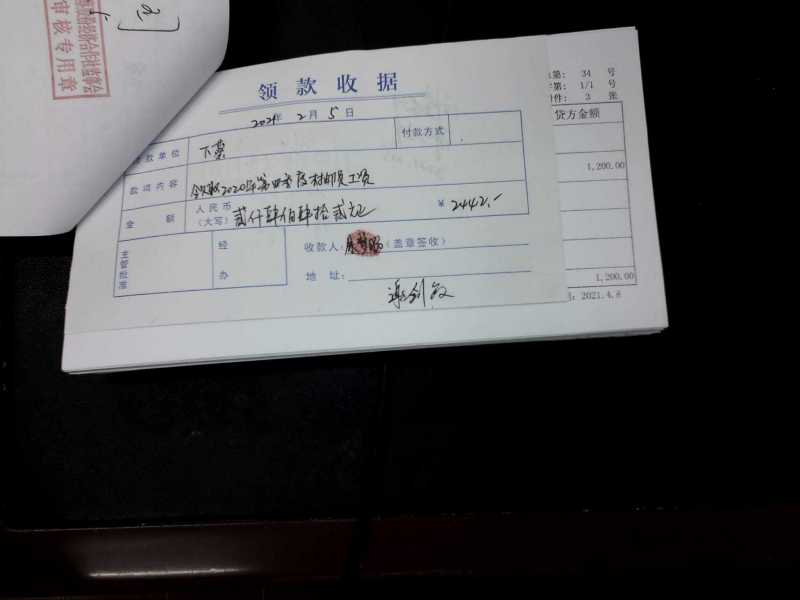 审核专用章
领款收据
2021年 2月 5日
领款单位 下 付款方式
款项内容 领取2020年第四季度村 员工资
金额 人民币(大写) 贰仟肆佰肆拾贰元正 ¥ 2442.-
主管批准 经办 收款人: (盖章签收)
地址:
谢剑敏
第: 34 号
第: 1/1 号
件: 3 张
贷方金额
1,200.00
1,200.00
: 2021.4.8